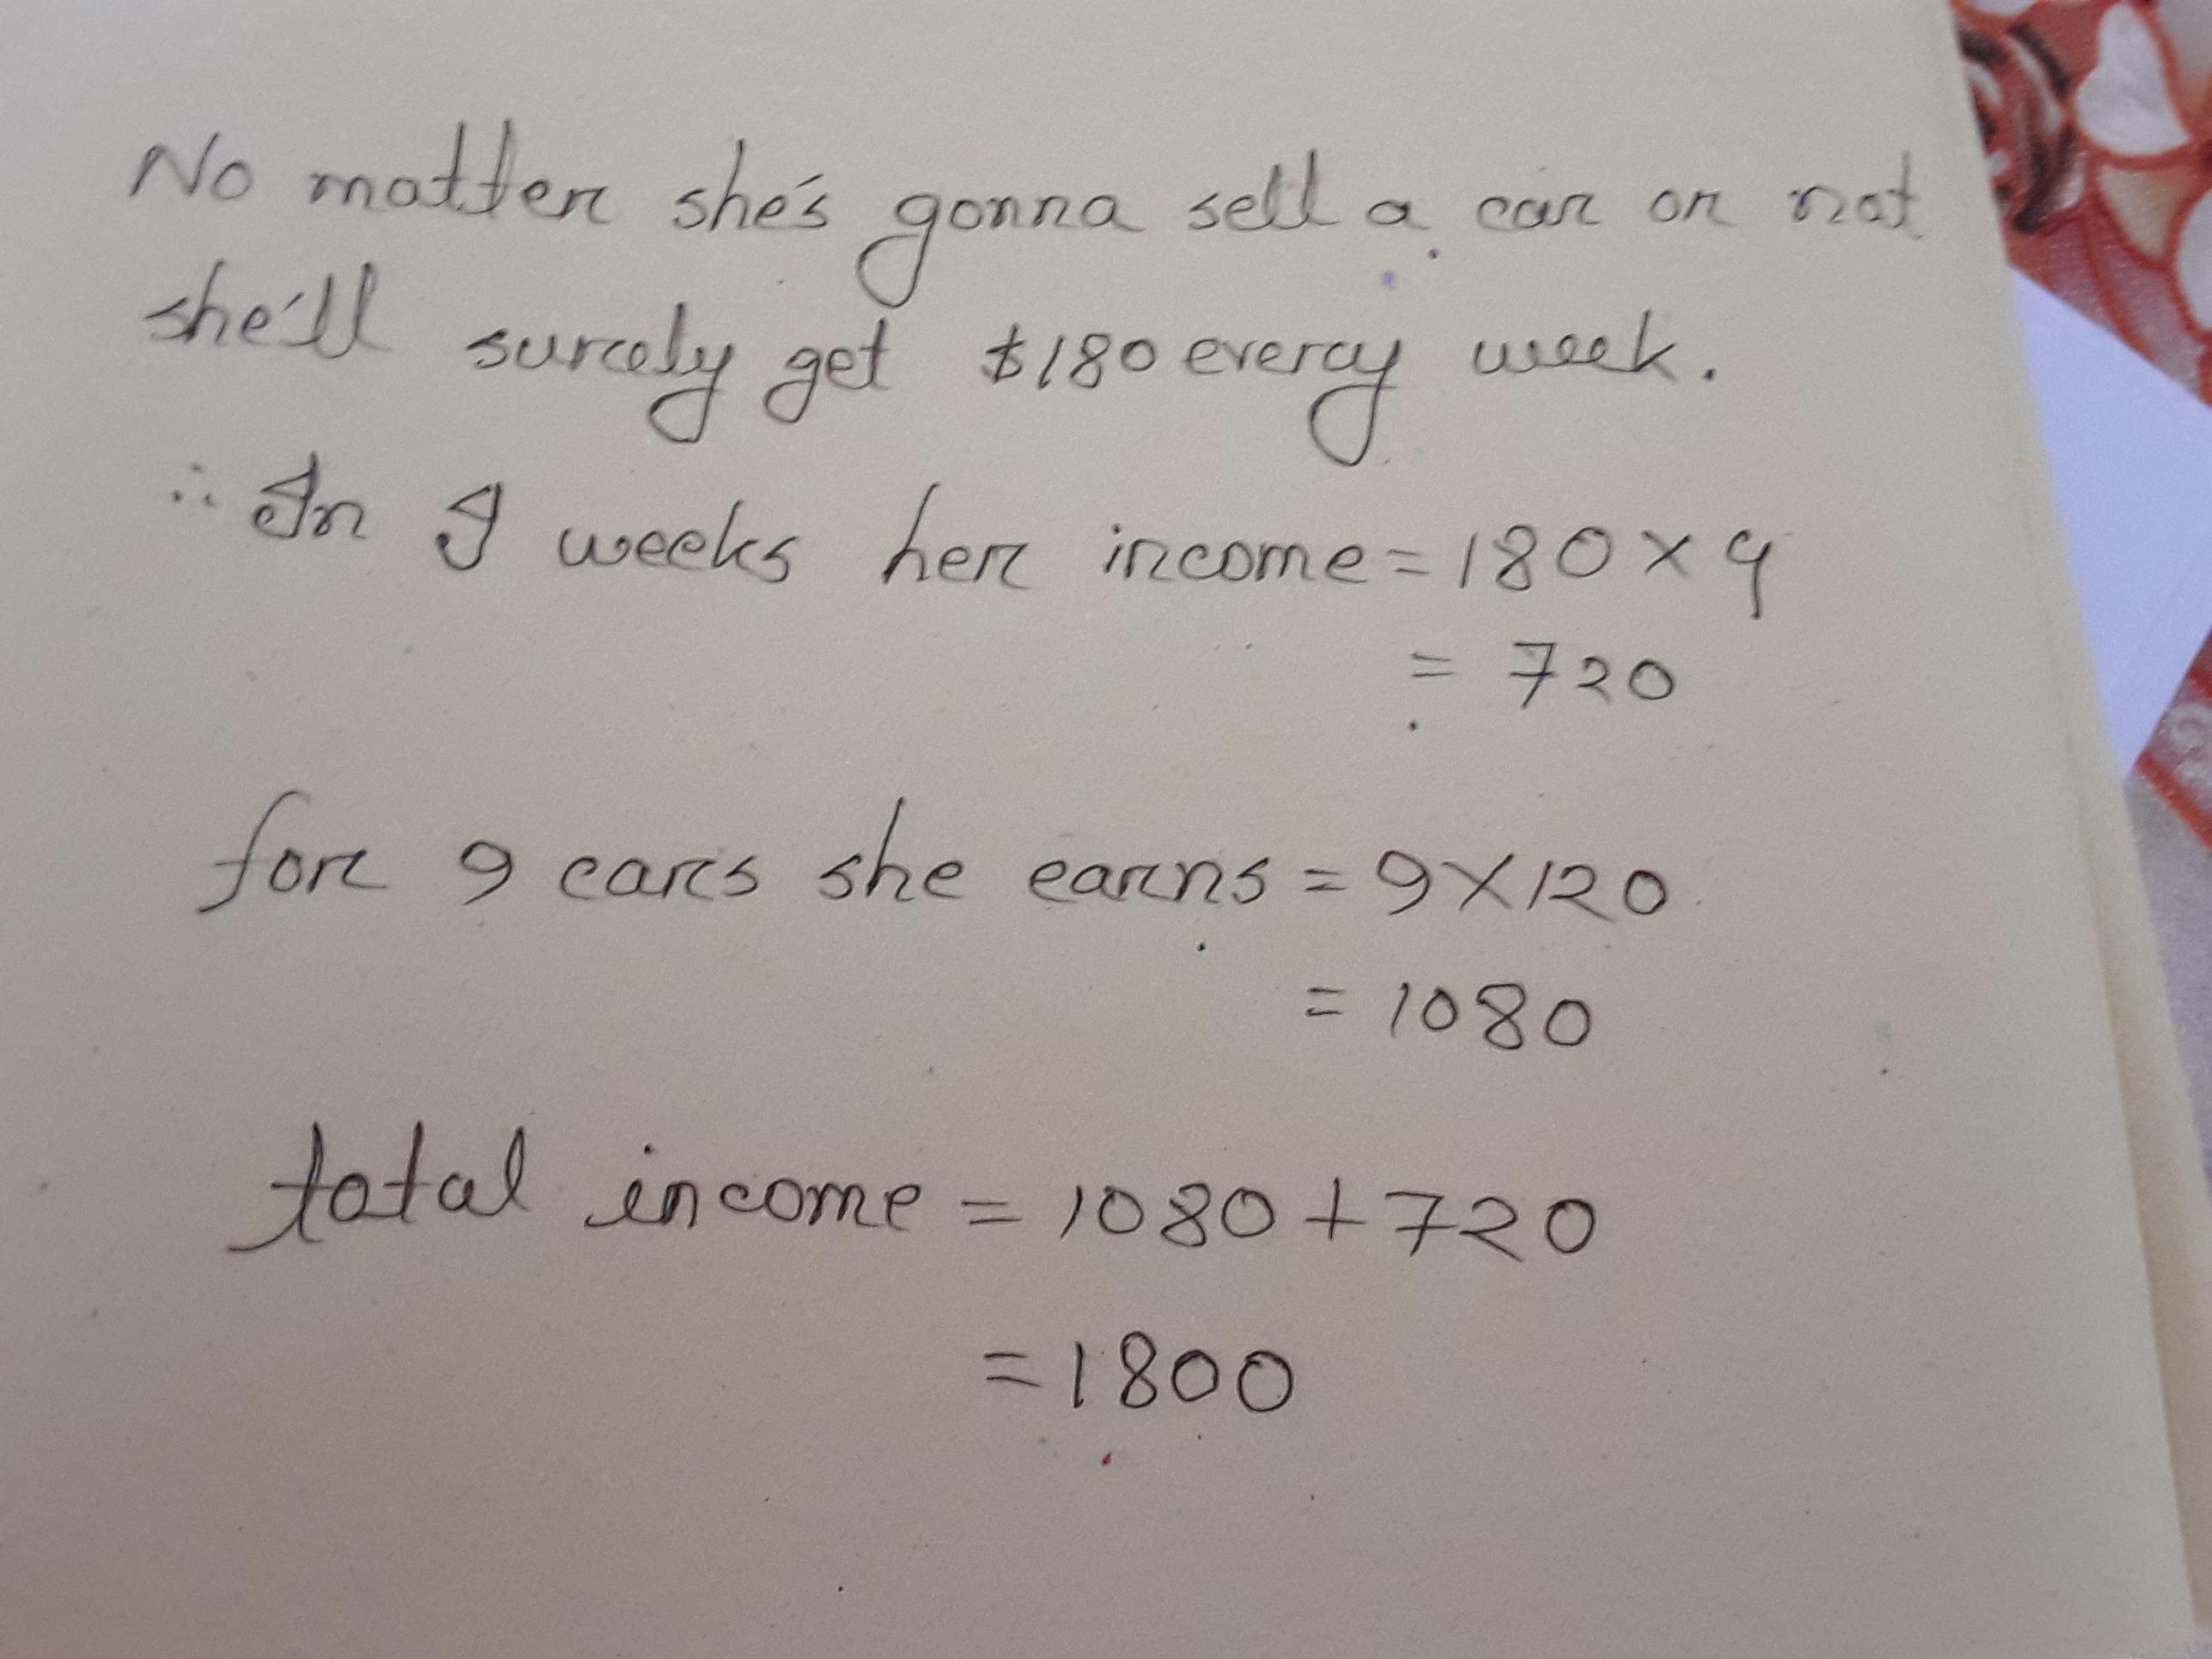 No matter she's gonna sell a car or not
she'll surely get $180 every week.
∴ In 4 weeks her income = 180 × 4
= 720
for 9 cars she earns = 9 × 120
= 1080
total income = 1080 + 720
= 1800